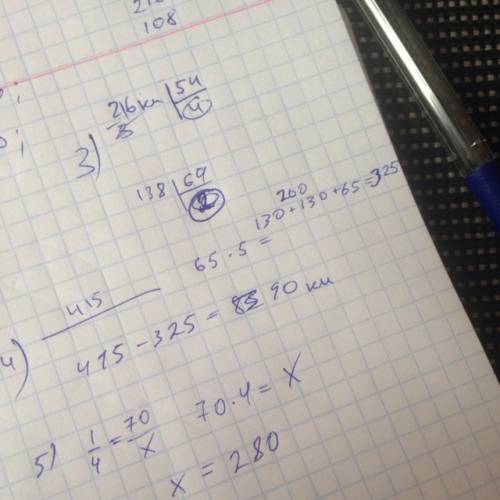 108
3) 216 км 54
4
138 69
2
260
65 · 5 = 130 + 130 + 65 = 325
4) 415
415 - 325 = 90 км
5) 1/4 = 70/x 70 · 4 = x
x = 280